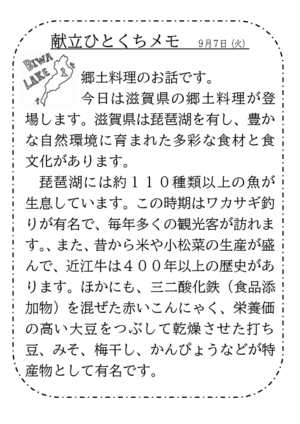 献立ひとくちメモ　9月7日（火）
BIWA
LAKE
郷土料理のお話です。
今日は滋賀県の郷土料理が登
場します。滋賀県は琵琶湖を有し、豊か
な自然環境に育まれた多彩な食材と食
文化があります。
琵琶湖には約１１０種類以上の魚が
生息しています。この時期はワカサギ釣
りが有名で、毎年多くの観光客が訪れま
す。、また、昔から米や小松菜の生産が盛
んで、近江牛は４００年以上の歴史があ
ります。ほかにも、三二酸化鉄（食品添
加物）を混ぜた赤いこんにゃく、栄養価
の高い大豆をつぶして乾燥させた打ち
豆、みそ、梅干し、かんぴょうなどが特
産物として有名です。